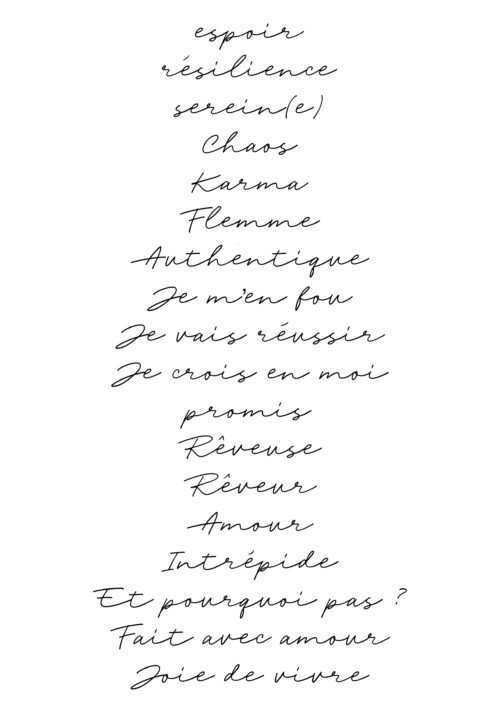 espoir
résilience
serein(e)
Chaos
Karma
Flemme
Authentique
Je m'en fou
Je vais réussir
Je crois en moi
promis
Rêveuse
Rêveur
Amour
Intrépide
Et pourquoi pas ?
Fait avec amour
Joie de vivre